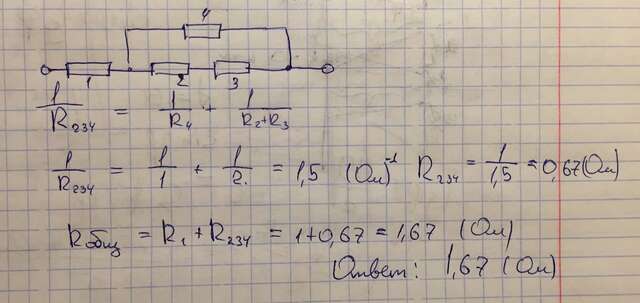 4
1 2 3
1/R₂₃₄ = 1/R₄ + 1/R₂+R₃
1/R₂₃₄ = 1/1 + 1/2. = 1,5 (Ом)⁻¹ R₂₃₄ = 1/1,5 = 0,67(Ом)
Rобщ = R₁ + R₂₃₄ = 1+0,67 = 1,67 (Ом)
Ответ: 1,67 (Ом)